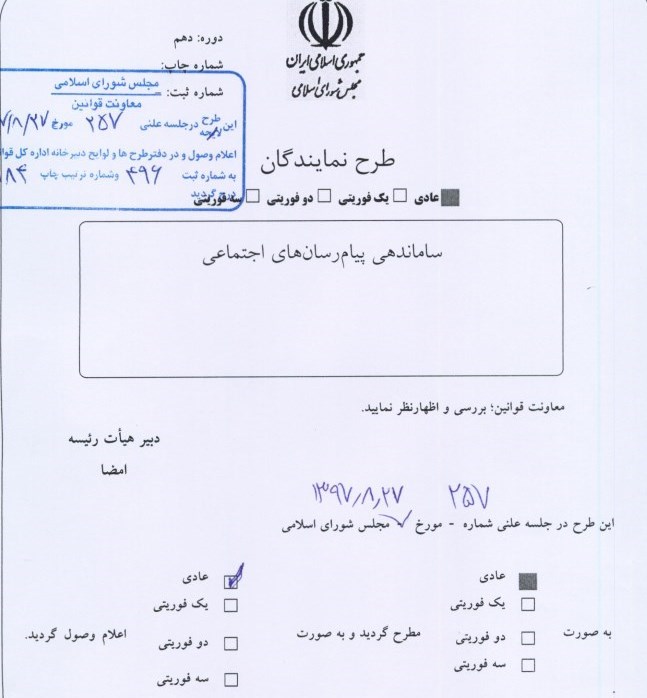 جمهوری اسلامی ایران
مجلس شورای اسلامی
دوره: دهم
شماره چاپ:
شماره ثبت:
مجلس شورای اسلامی
معاونت قوانین
این طرح لایحه در جلسه علنی ۲۵۷ مورخ ۷/۸/۲۷
اعلام وصول و در دفتر طرح ها و لوایح دبیرخانه اداره کل
به شماره ثبت ۴۹۶ وشماره ترتیب چاپ
درج گردید
طرح نمایندگان
عادی یک فوریتی دو فوریتی سه فوریتی
ساماندهی پیام‌رسان‌های اجتماعی
معاونت قوانین؛ بررسی و اظهارنظر نمایید.
دبیر هیأت رئیسه
امضا
۲۵۷ ۱۳۹۷/۸/۲۷
این طرح در جلسه علنی شماره - مورخ - مجلس شورای اسلامی
عادی عادی
یک فوریتی یک فوریتی
به صورت دو فوریتی مطرح گردید و به صورت دو فوریتی اعلام وصول گردید.
سه فوریتی سه فوریتی